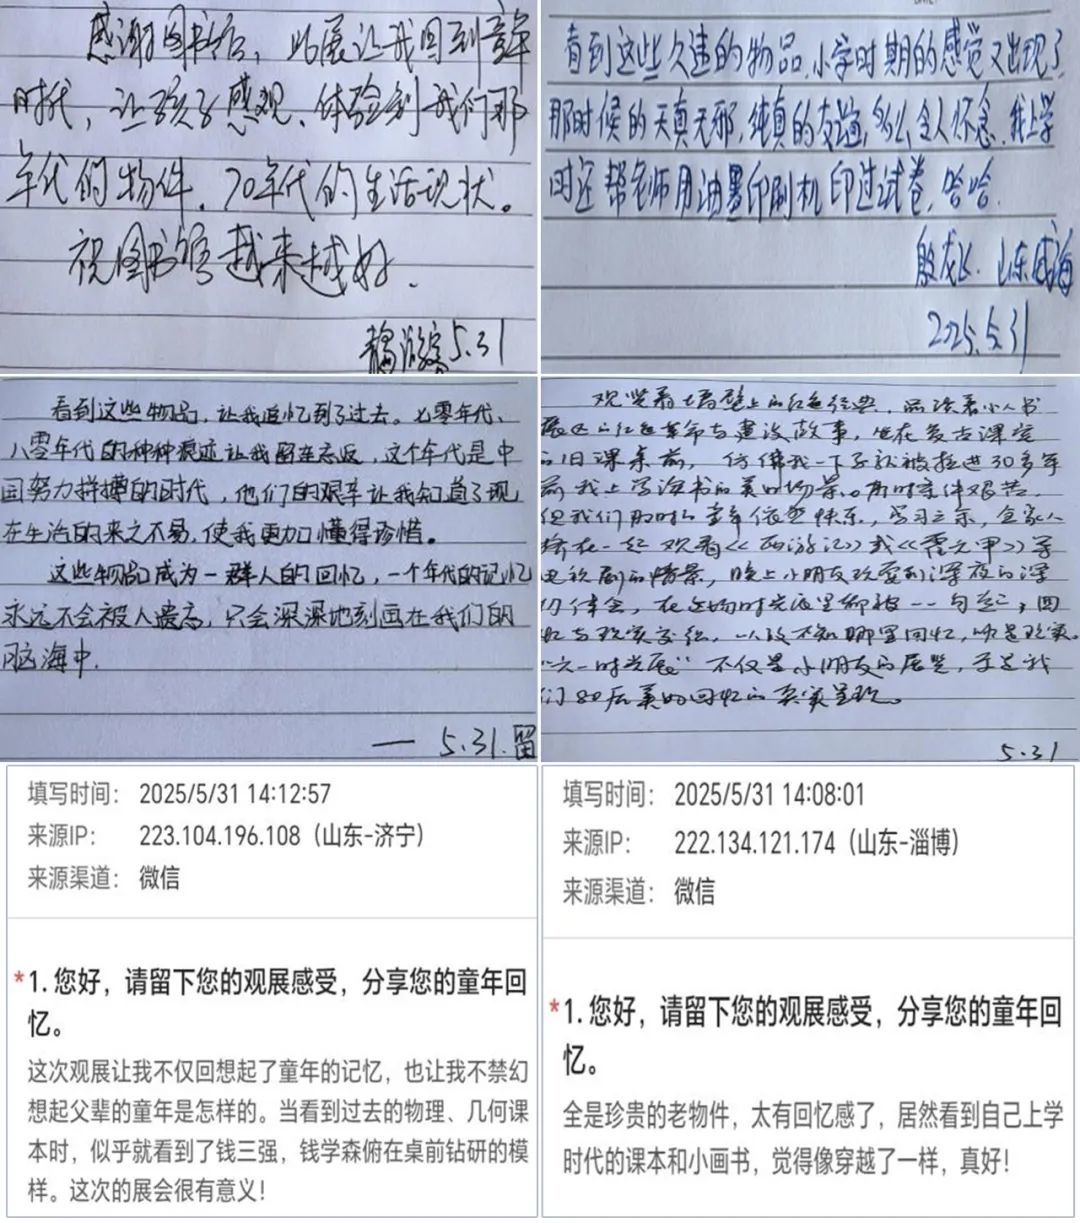 感谢图书馆，此展让我回到童年
时代，让孩子感观、体验到我们那
年代的物件，70年代的生活现状。
祝图书馆越来越好.
游客 5.31
看到这些久违的物品,小学时期的感觉又出现了
那时候的天真无邪,纯真的友谊,多么令人怀念,我上学
时还帮老师用油墨印刷机印过试卷,哈哈.
殷 山东威海
2025.5.31
看到这些物品,让我追忆到了过去。七零年代、
八零年代的种种痕迹让我留连忘返,这个年代是中
国努力拼搏的时代,他们的艰辛让我知道了现
在生活的来之不易,使我更加懂得珍惜。
这些物品成为一群人的回忆,一个年代的记忆
永远不会被人遗忘,只会深深地刻画在我们的
脑海中.
— 5.31.留
观览着墙壁上的红色经典,品读着小人书
展区的红色革命与建设故事,坐在复古课堂
的旧课桌前,仿佛我一下子就被拉进30多年
前我上学读书的美好场景。有时条件艰苦,
但我们那时的童年依然快乐,学习之余,全家人
挤在一起观看《西游记》或《霍元甲》等
电视剧的情景,晚上小朋友玩耍到深夜的深
切体会,在这场时光展里都被一一勾起;回
忆与现实交织,以致不知哪里回忆,哪是现实。
"六一时光展"不仅是小朋友的展览,于是我
们80后美好回忆的真实呈现。
5.31
填写时间: 2025/5/31 14:12:57
来源IP: 223.104.196.108（山东-济宁）
来源渠道: 微信
*1. 您好，请留下您的观展感受，分享您的童年回
忆。
这次观展让我不仅回想起了童年的记忆，也让我不禁幻
想起父辈的童年是怎样的。当看到过去的物理、几何课
本时，似乎就看到了钱三强，钱学森俯在桌前钻研的模
样。这次的展会很有意义！
填写时间: 2025/5/31 14:08:01
来源IP: 222.134.121.174（山东-淄博）
来源渠道: 微信
*1. 您好，请留下您的观展感受，分享您的童年回
忆。
全是珍贵的老物件，太有回忆感了，居然看到自己上学
时代的课本和小画书，觉得像穿越了一样，真好！